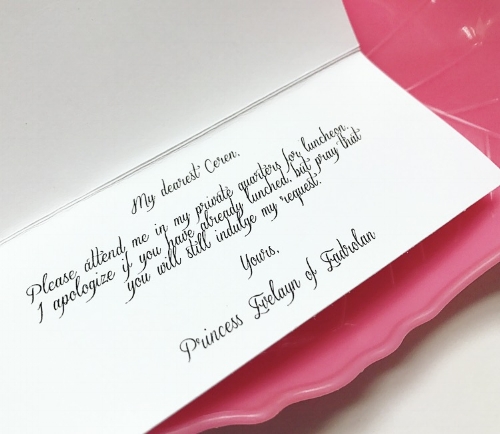 My dearest Coren,
Please attend me in my private quarters for luncheon.
I apologize if you have already lunched, but pray that
you will still indulge my request.
Yours,
Princess Evelayn of Eadrolan